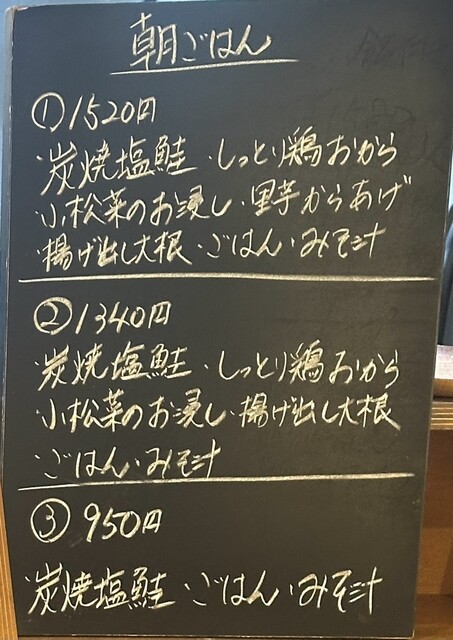 朝ごはん
①1520円
炭焼塩鮭・しっとり鶏おから
小松菜のお浸し・里芋からあげ
揚げ出し大根・ごはん・みそ汁
②1340円
炭焼塩鮭・しっとり鶏おから
小松菜のお浸し・揚げ出し大根
ごはん・みそ汁
③950円
炭焼塩鮭・ごはん・みそ汁